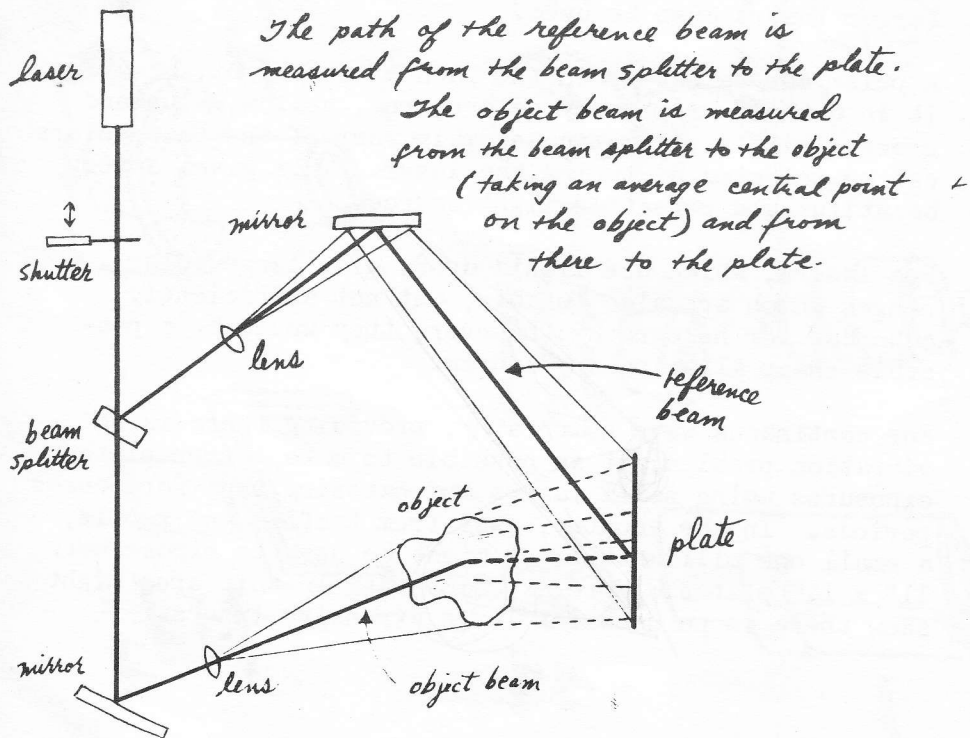 The path of the reference beam is
measured from the beam splitter to the plate.
The object beam is measured
from the beam splitter to the object
(taking an average central point
on the object) and from
there to the plate.
laser
shutter
mirror
lens
beam
splitter
reference
beam
object
plate
mirror
lens
object beam